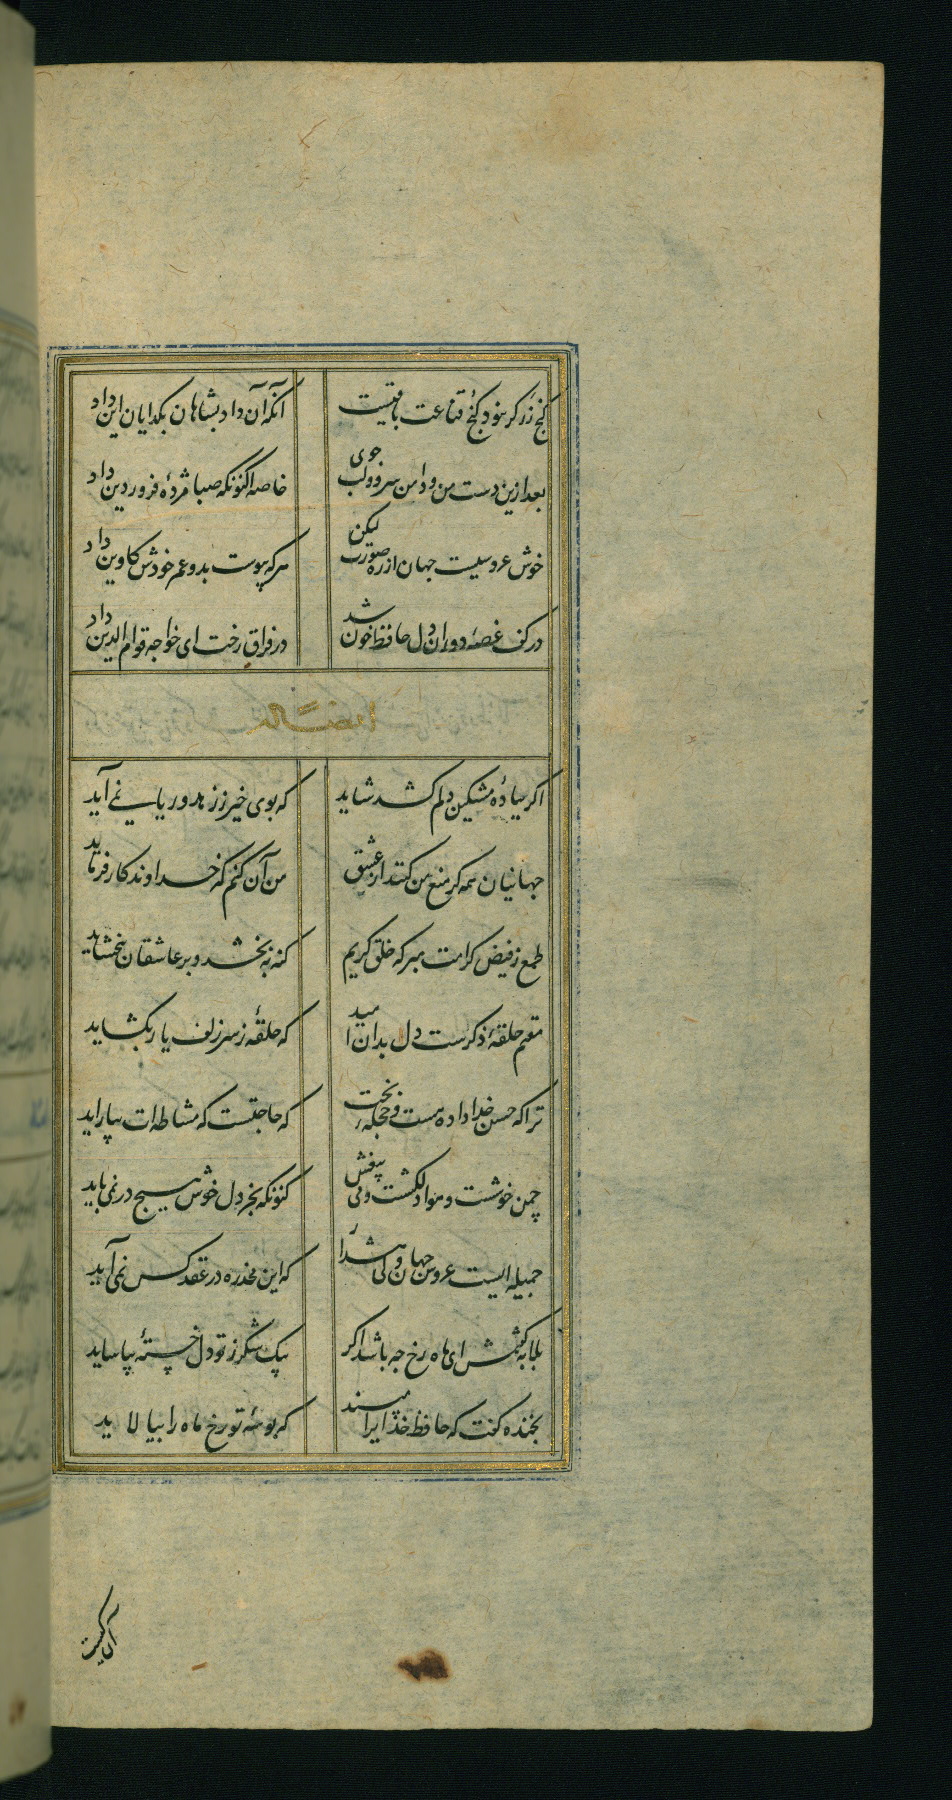 گنج زر گر نبود کنج قناعت باقیست
آنکه آن داد بشاهان بگدایان این داد
بعد ازین دست من و دامن سرو و لب جوی
خاصه اکنونکه صبا مژدهٔ فروردین داد
خوش عروسیست جهان از ره صورت لیکن
هرکه پیوست بدو عمر خودش کاوین داد
در کف غصهٔ دوران دل حافظ خون شد
در فراق رخت ای خواجه قوام الدین داد
ایضاً له
اگر بباده مشکین دلم کشد شاید
که بوی خیر ز زهد و ریا نمی آید
جهانیان همه گر منع من کنند از عشق
من آن کنم که خداوندکار فرماید
طمع ز فیض کرامت مبر که خلق کریم
گنه ببخشد و بر عاشقان ببخشاید
مقیم حلقهٔ ذکرست دل بدان امید
که حلقهٔ ز سر زلف یار بگشاید
ترا که حسن خداداده هست و حجلهٔ بخت
که حاجتست که مشاطه ات بیاراید
چمن خوشست و هوا دلکشست و می بیغش
کنونکه بجز دل خوش هیچ در نمی باید
جمیله ایست عروس جهان ولی هشدار
که این مخدره در عقد کس نمی آید
بلابه گفتمش ای ماه رخ چه باشد اگر
بیک شکر ز تو دل خستهٔ بیاساید
بخنده گفت که حافظ خدایرا مپسند
که بوسهٔ تو رخ ماه را بیالاید
آن کیست